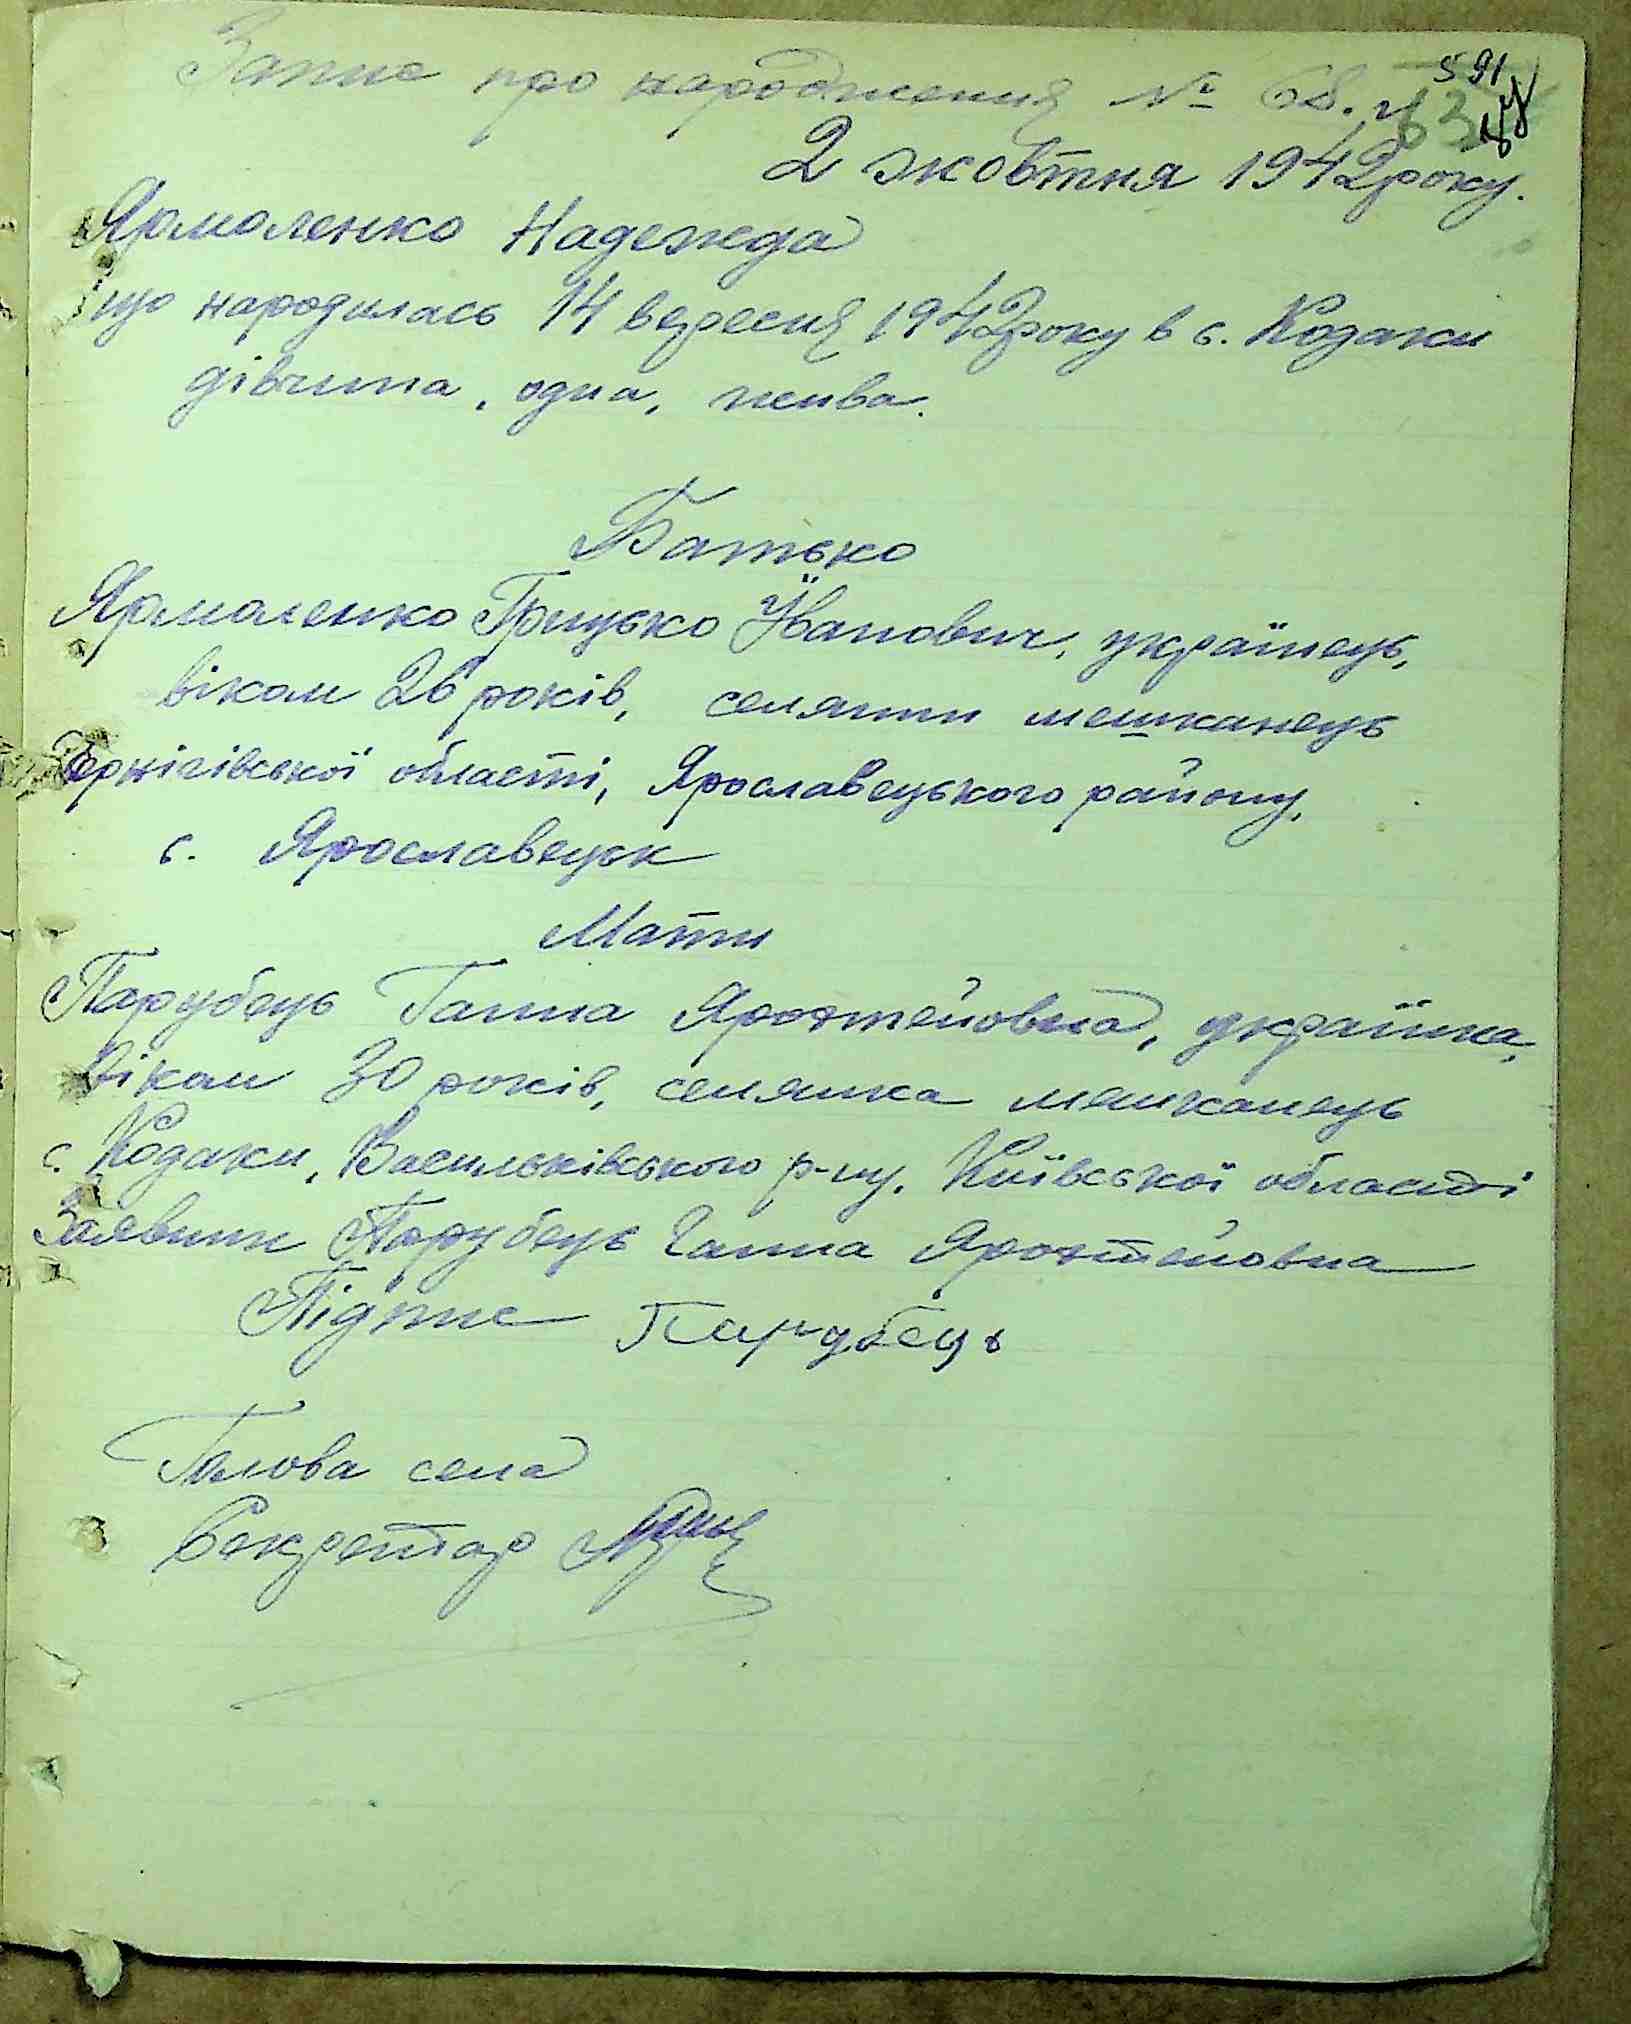 591
Запис про народження № 68.
2 жовтня 1942 року.
Ярмоленко Надежда
що народилась 14 вересня 1942 року в с. Кодаки
дівчина, одна, жива.
Батько
Ярмоленко Грицько Йванович, українець,
віком 26 років, селянин мешканець
Чернігівської області, Ярославецького району,
с. Ярославецьк
Мати
Парубець Ганна Ярохтейовна, українка,
віком 30 років, селянка мешканець
с. Кодаки, Васильківського р-ну, Київської області
Заявник Парубець Ганна Ярохтейовна
Підпис Парубець
Голова села
Секретар